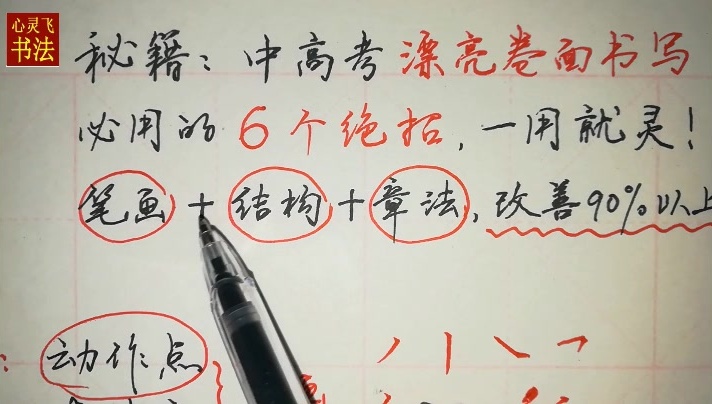 心灵飞
书法
秘籍：中高考漂亮卷面书写
必用的6个绝招，一用就灵！
笔画+结构+章法，改善90%以上
动作点